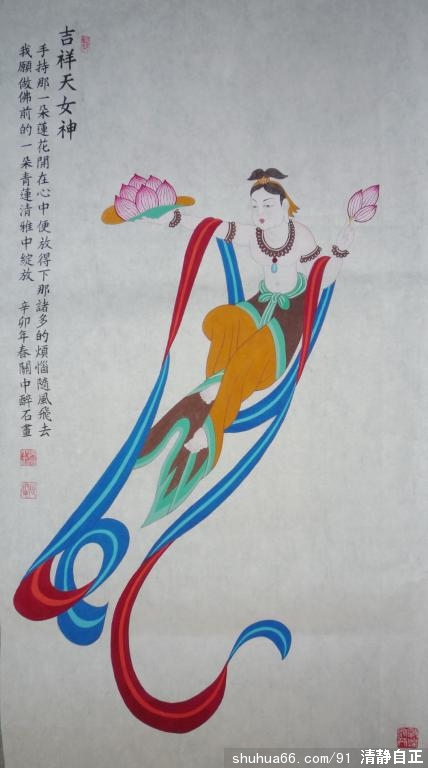 吉祥天女神
手持那一朵蓮花開在心中便放得下那諸多的煩惱隨風飛去
我願做佛前的一朵青蓮清雅中綻放 辛卯年春關中醉石畫
shuhua66.com/91 清静自正